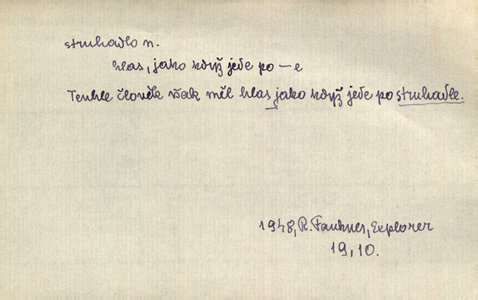 struhadlo n.
hlas, jako když jede po –e
Tenhle člověk však měl hlas jako když jede po struhadle.
1948, R. Faukner, Explorer
19,10.